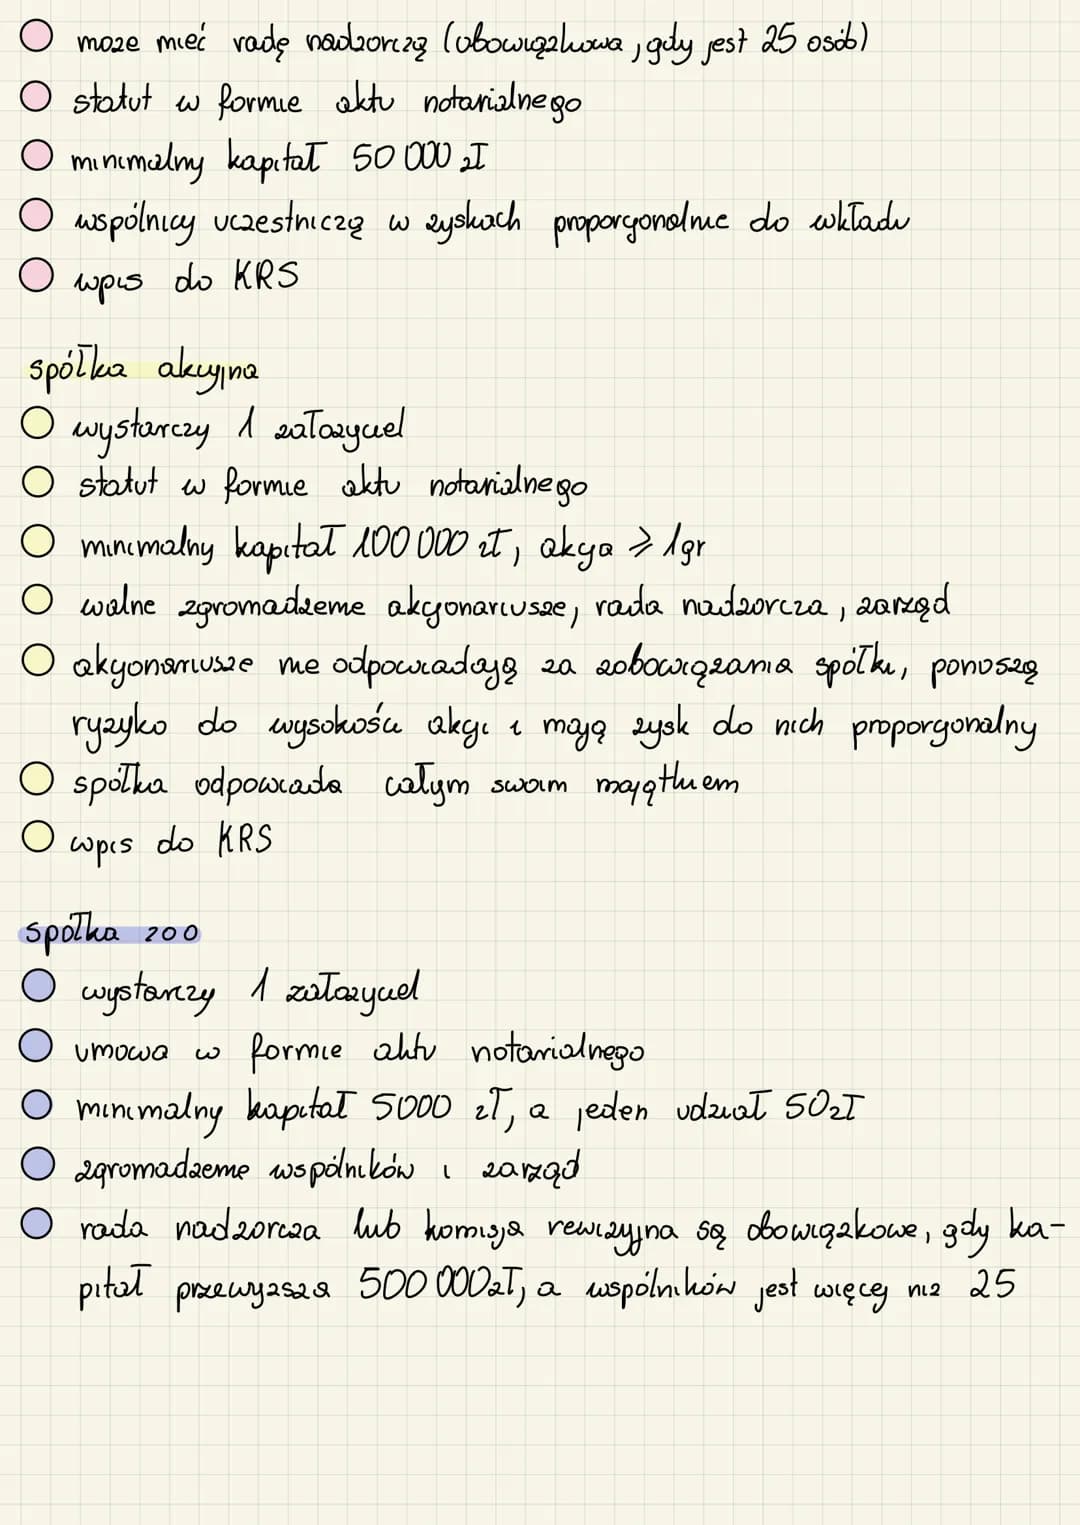 może mieć radę nadzorczą (obowiązkowa, gdy jest 25 osób)
statut w formie aktu notarialnego
minimalny kapitał 50 000 zł
wspólnicy uczestniczą w zyskach proporcjonalnie do wkładu
wpis do KRS
spółka akcyjna
wystarczy 1 założyciel
statut w formie aktu notarialnego
minimalny kapitał 100 000 zł, akcja ≥ 1gr
walne zgromadzenie akcjonariusze, rada nadzorcza, zarząd
akcjonariusze nie odpowiadają za zobowiązania spółki, ponoszą
ryzyko do wysokości akcji i mają zysk do nich proporcjonalny
spółka odpowiada całym swoim majątkiem
wpis do KRS
spółka zoo
wystarczy 1 założyciel
umowa w formie aktu notarialnego
minimalny kapitał 5000 zł, a jeden udział 50zł
zgromadzenie wspólników i zarząd
rada nadzorcza lub komisja rewizyjna są obowiązkowe, gdy ka-
pitał przewyższa 500 000zł, a wspólników jest więcej niż 25